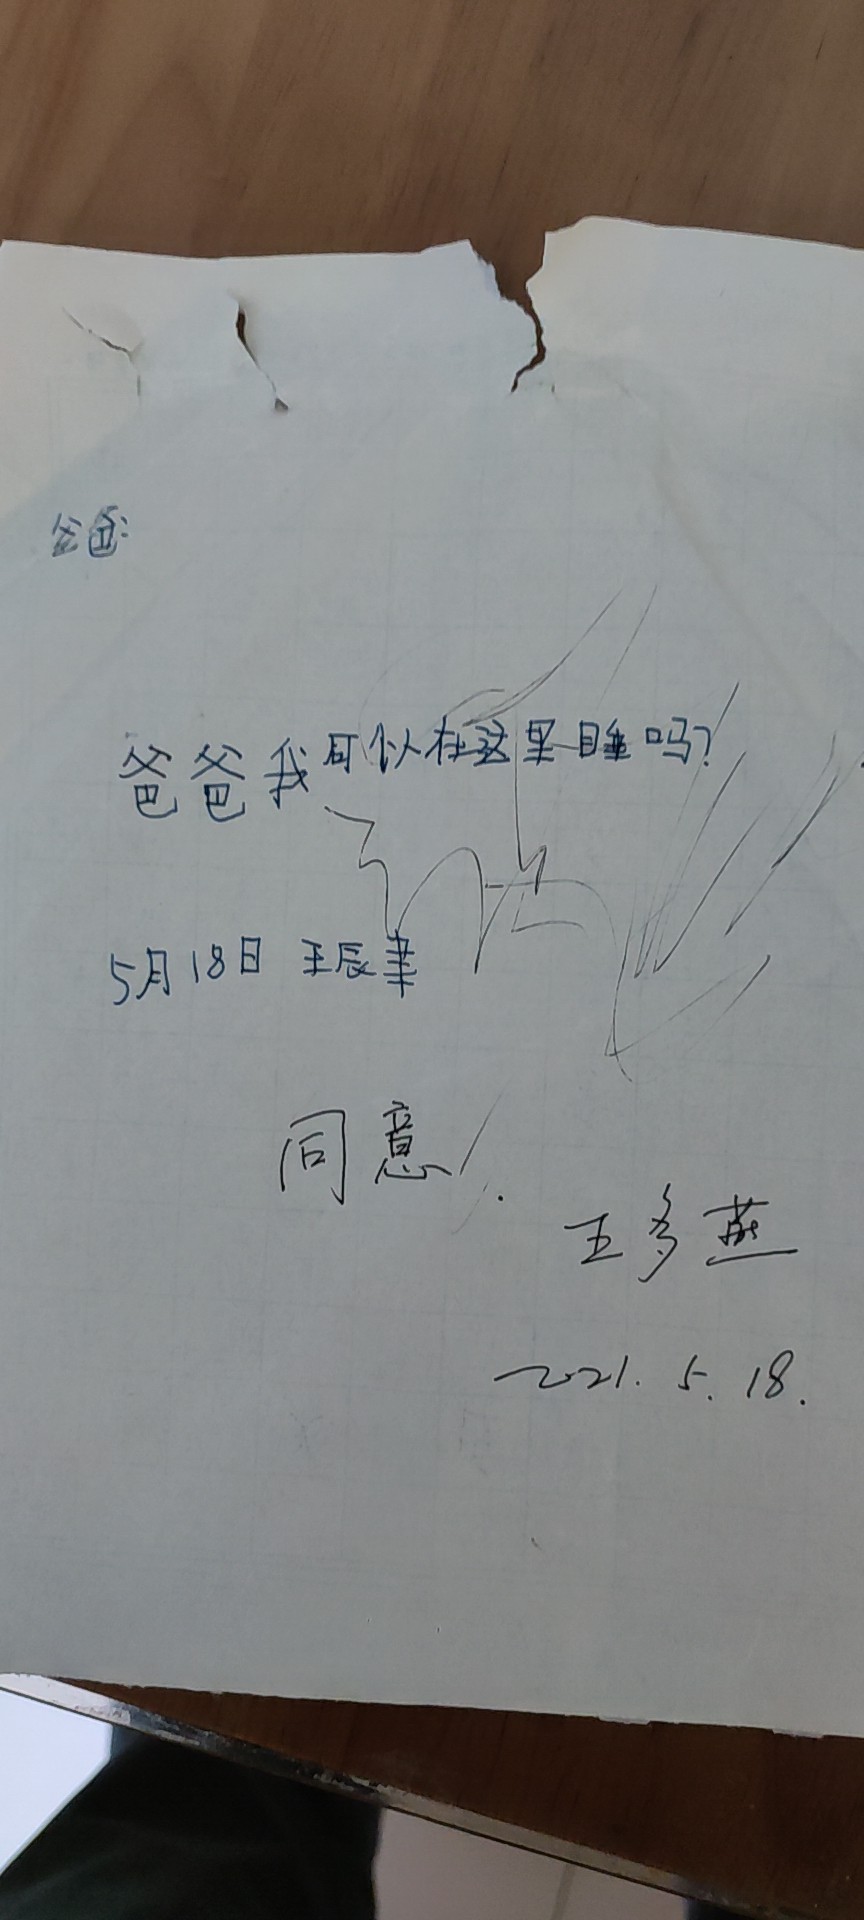 爸爸我可以在这里睡吗?
5月18日 王辰
同意.
王多燕
2021.5.18.